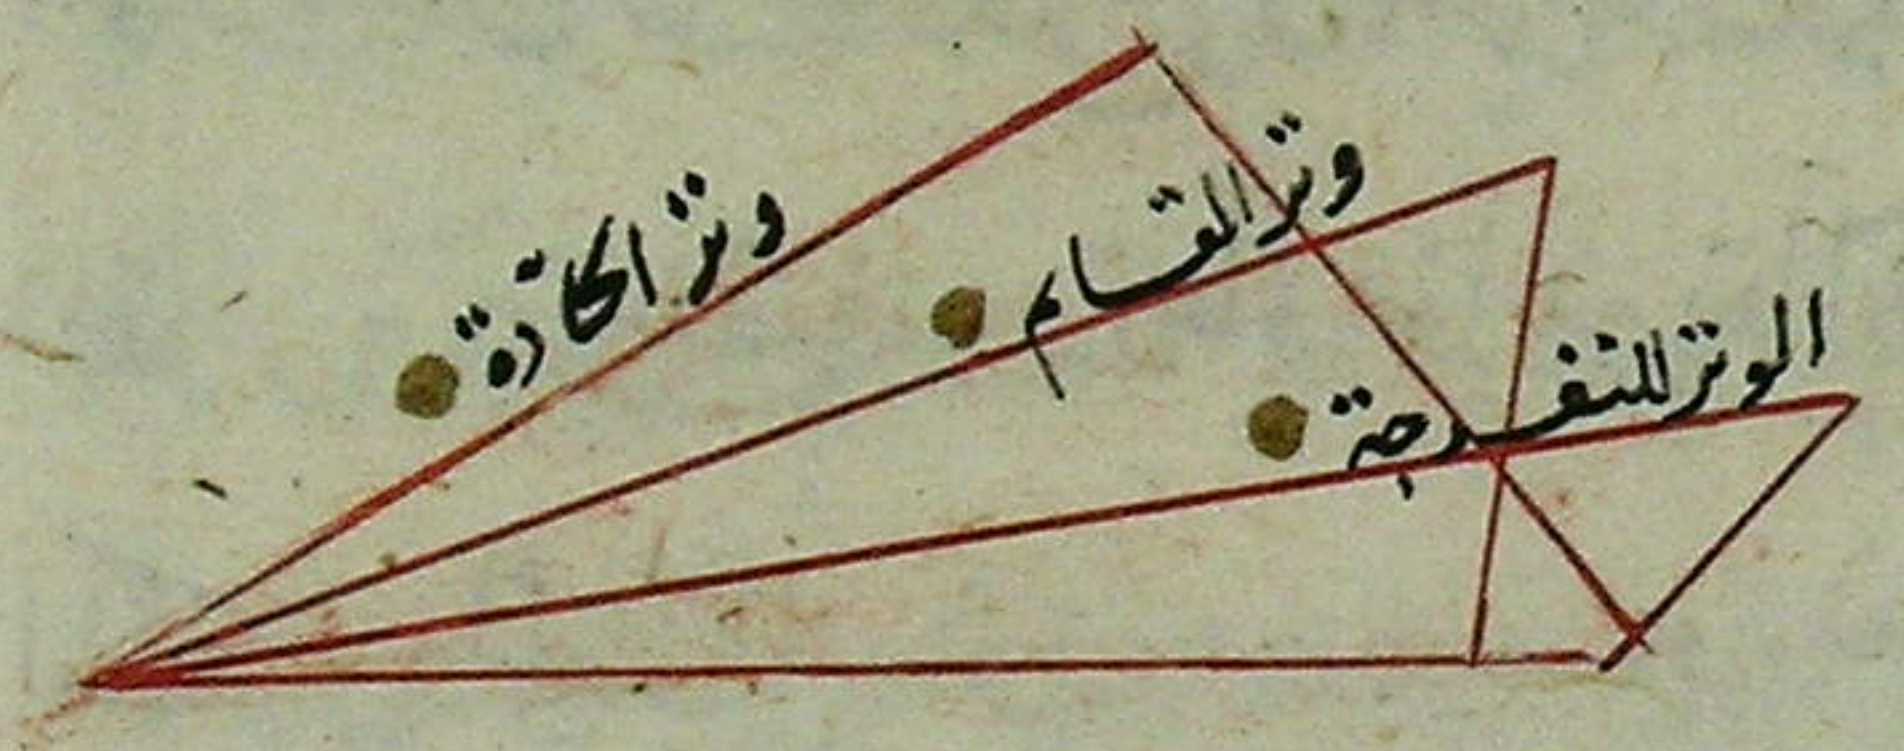 وتر الحادّة
وتر القايم
الوتر للمنفرجة